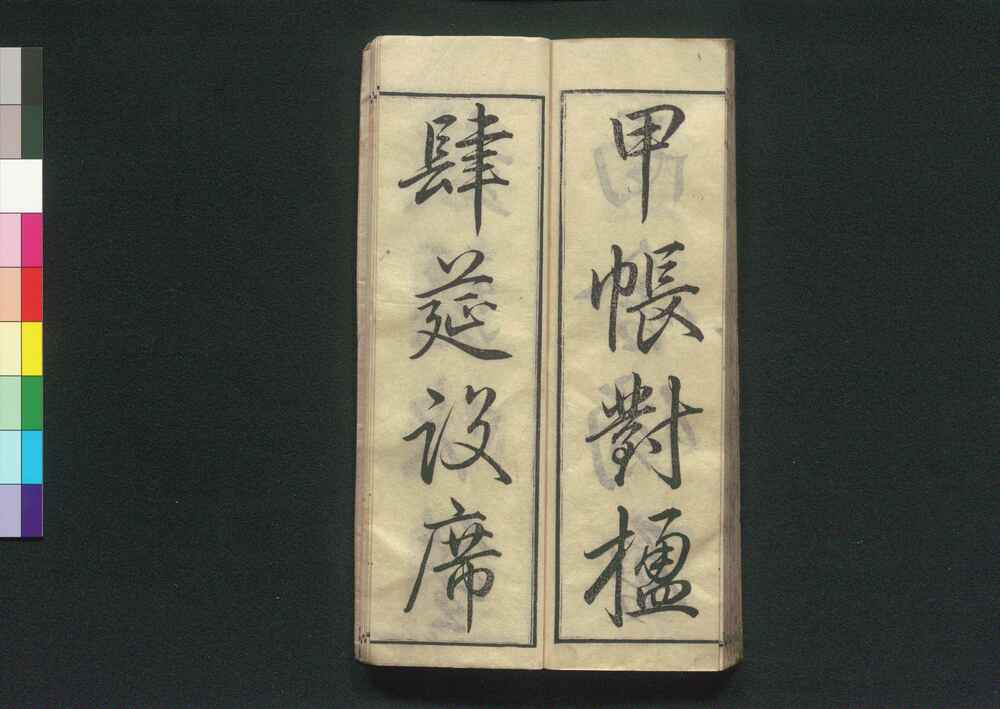 甲帳對楹
肆筵設席